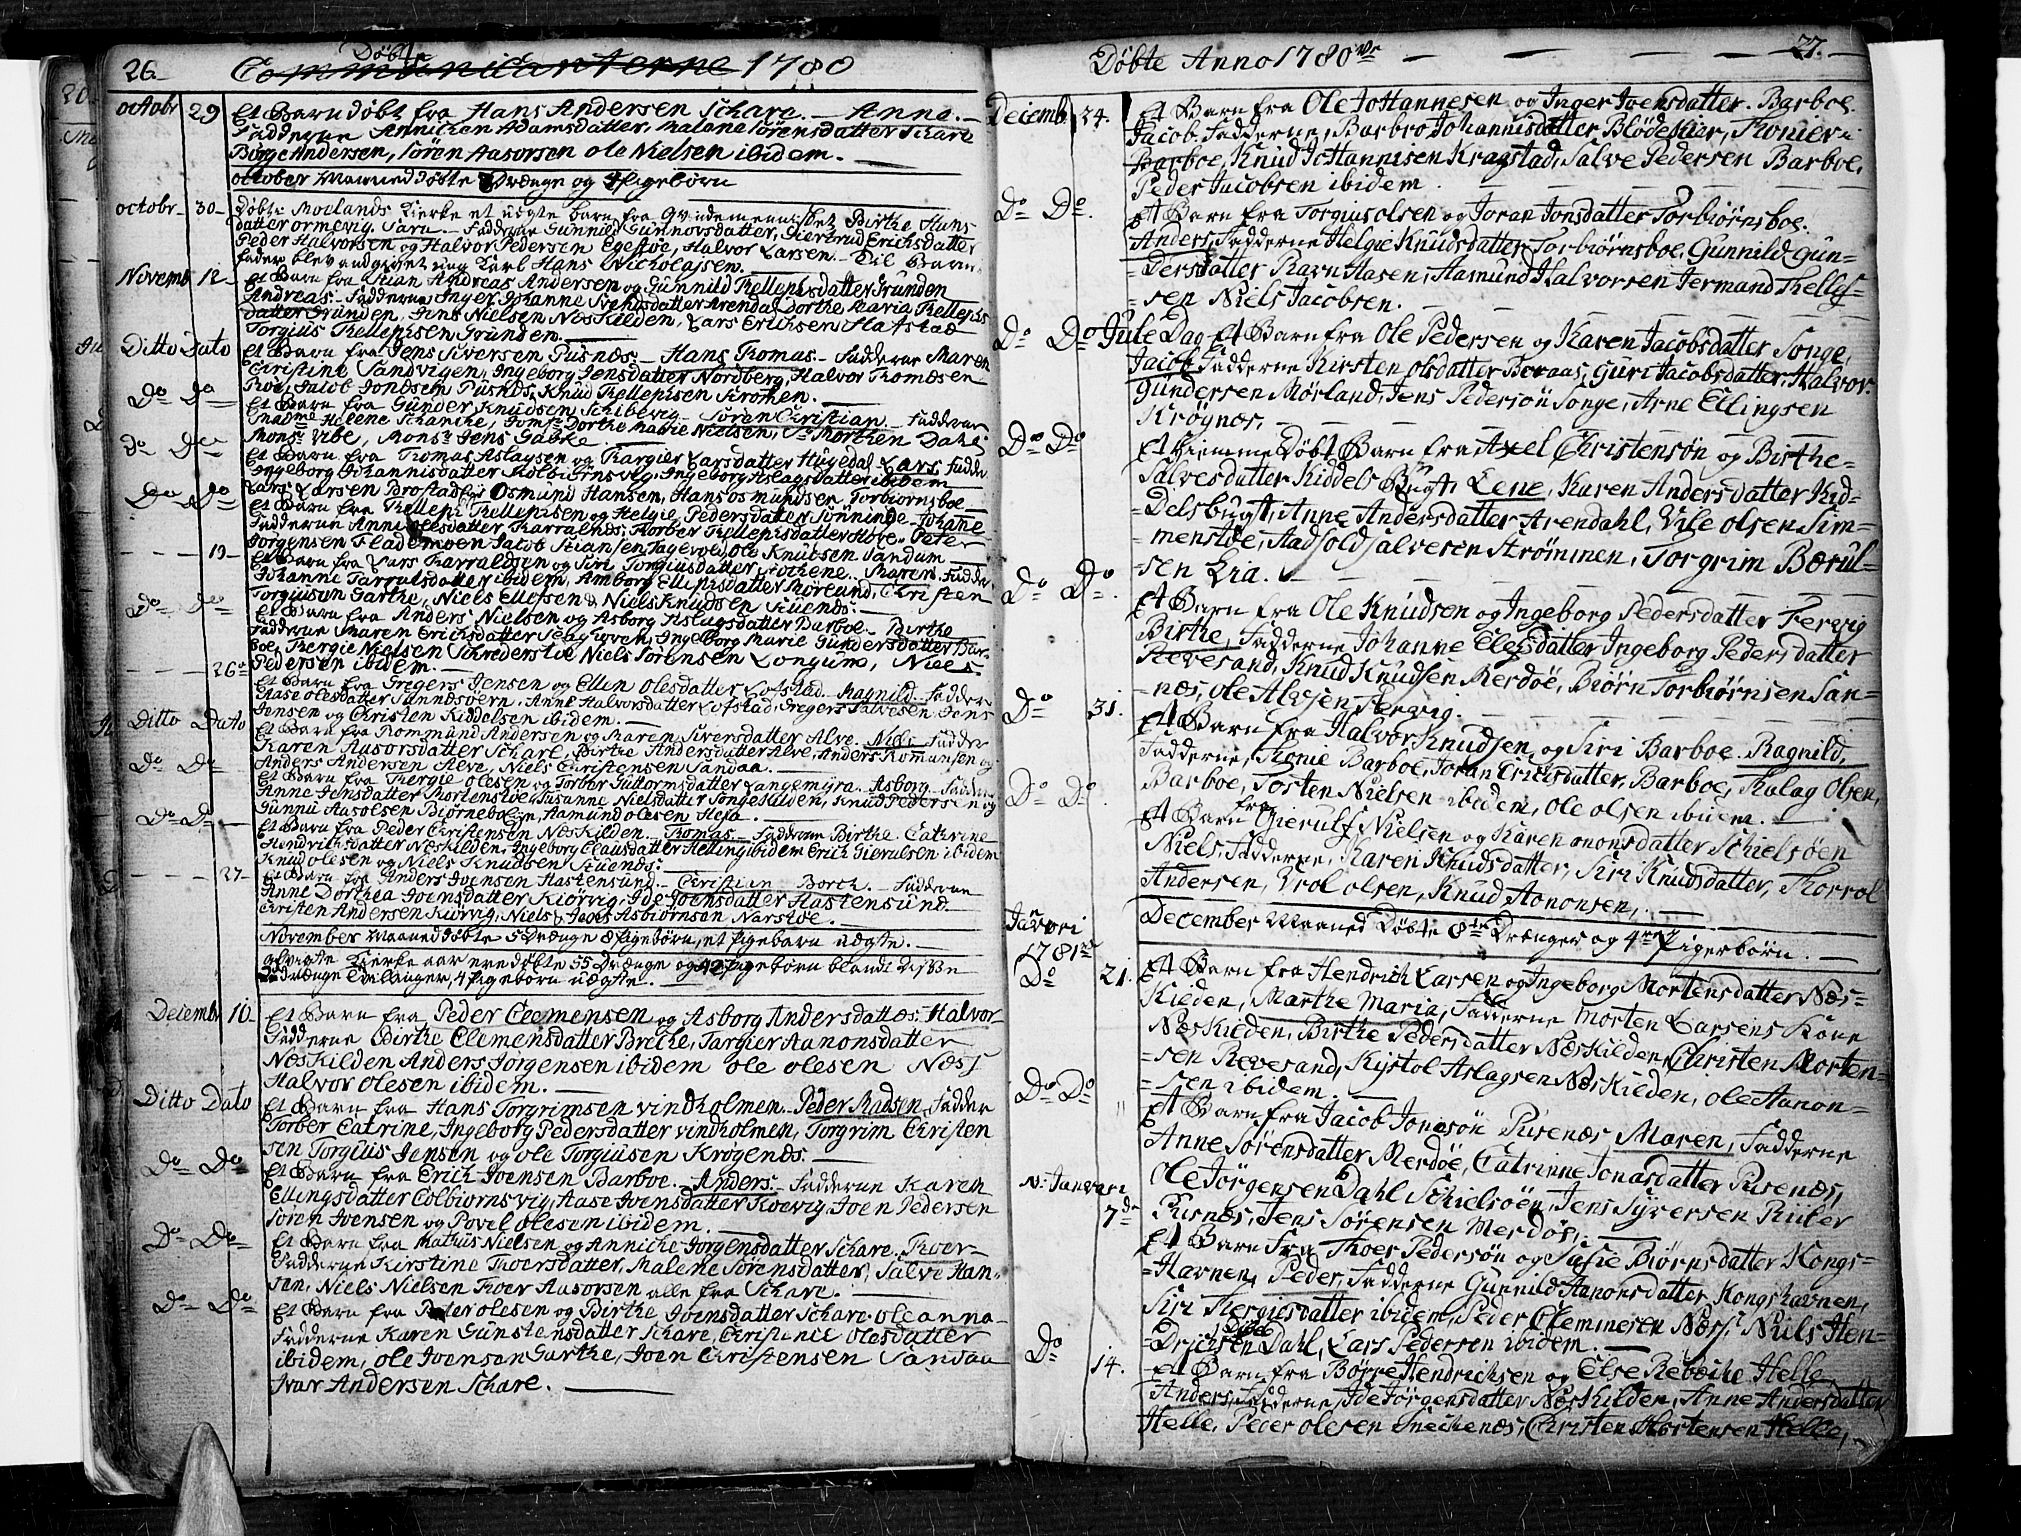 26.
Døbte
Communicanterne 1780
octobr 29 Et Barn døbt fra Hans Andersen Schare. – Anne. –
Fadderne Annichen Adamsdatter, Malene Sörensdatter Schare
Börge Andersen, Sören Aasorsen ole Nielsen ibidem. –
october Maaned døbte Drænge og Pigebørn
octobr 30 Døbt i Moelands Kierke et uægte barn fra Qvindemennisket Birthe Hans
datter ormevig. Sara. – Fadderne Gunnild Gunnorsdatter, Giertrud Erichsdatter
Peder Halvorsen og Halvor Pedersen Egestöe, Halvor Larsen. – Til Barne
fader blev andgivet ung Karl Hans Nicholajsen.
Novemb 12 Et Barn fra Stian Andreas Andersen og Gunnild Kellephsdatter Grunden
Andreas. – Fadderne Inger Johanne datter Arendal Dorthe Maria Kellephs
datter Grunden, Jens Nielsen Neskilden, Lars Ericksen Hafstad
Torgius Kellephsen Grunden.
Ditto Dato Et Barn fra Jens Siversen Pusnes. – Hans Thomas. – Fadderne Maren
Christine Sandvigen, Ingeborg Jensdatter Nordberg, Halvor Thomesen
Roe, Jacob Jonesen Pusnes, Knud Kellephsen Strømen.
Do Do Et Barn fra Gunder Knudsen Schibevig – Sören Christian – Fadderne
Madme Helene Schancke, Jomfr Dorthe Marie Nielsen, Sr Morthen Dahl
Monsr Vibe, Monsr Jens Gabke.
Do Do Et Barn fra Thomas Aslagsen og Thargier Larsdatter Hugedal Lars Fadder
Ingeborg Johannisdatter Kolbiörnsvig, Ingeborg Aslagsdatter ibidem
Lars Larsen Brostad Osmund Hansen, Hans osmundsen Torbiornsboe
Do Do Et Barn fra Kelleph Kellephsen og Helgie Pedersdatter Johane
Fadderne Anne olesdatter, Torber Kellephsdatter Hove. Peter
Jorgensen Flademoen Jacob Stiansen Ole Knudsen Sandum
– – – 19 – Et Barn fra Lars Harraldsen og Siri Torgiusdatter Maren. Fadder
Johanne Tarraldsdatter ibidem, Amborg Ellefsdatter Christen
Torgiusen Garthe, Niels Ellefsen & Niels Knudsen Stuenes.
Do Do Et Barn fra Anders Nielsen og Asborg Aslagsdatter Barboe. – Birthe
Fadderne Maren Ericksdatter Ingeborg Marie Gundersdatter Bar
boe, Thergie Nielsen Niels Sörensen Longum, Niels
Pedersen ibidem.
– – – 26 Et Barn fra Gregers Jensen og Ellen Olesdatter Lofstad. Magnild. Fadder
Aase olesdatter Sunnedsvern, Anne Halvorsdatter Lofstad, Gregers Salvesen Jens
Jensen og Christen Kiddelsen ibidem.
Ditto Dato Et Barn fra Rommund Andersen og Maren Siversdatter Alve. Niels Fadder
Karen Aasorsdatter Schare, Birthe Andersdatter Alve, Anders Romunsen og
Anders Andersen Alve, Niels Christensen Sandaa.
Do Do Et Barn fra Thergie olesen og Torber Guttormsdatter Langemyra. Asborg. Fadder
Anne Jensdatter Mortenstöe Susanne Nielsdatter Songekilden, Knud Pedersen og
Gunnu Aasolsen Aamund olesen Heja.
Do Do Et Barn fra Peder Christensen Neskilden. Thomas. – Fadderne Birthe Cathrine
Hendrichsdatter Neskilden, Ingeborg Clausdatter ibidem Erich Gierulsen ibidem
Knud olesen og Niels Knudsen Stuenes.
– – – 27 – Et Barn fra Anders Joensen Hastensund – Christian Borth. – Fadderne
Anne Dorthea Joensdatter Kiörvig, Ide Joensdatter Hastensund
Christen Andersen Kiörvig, Niels & Jens Asbiörnsen Narstöe.
November Maaned døbte 5 Drænge 8 Pigebørn, et Pigebarn uægte.
Kierke aar ere døbte 55 Drænge og 42 Pigebørn blandt disse
Drænge Tvelinger, 4 Pigebørn uægte.
Decembr 10 Et Barn fra Peder Clemensen og Asborg Andersdatter Halvor
Fadderne Birthe Clemensdatter Brecke, Targier Aanonsdatter
Neskilden Anders Jörgensen ibidem ole olesen Næss
Halvor olesen ibidem.
Ditto Dato Et Barn fra Hans Torgrimsen vindholmen. Peder Madsen. Fadder
Torber Catrine, Ingeborg Pedersdatter vindholmen, Torgrim Christen
sen Torgius Jensen og ole Torgiusen Krögenes.
Do Do Et Barn fra Erich Joensen Barboe. – Anders. – Fadderne Karen
Ellingsdatter Colbiornsvig, Aase Joensdatter Joen Pedersen
Sören Joensen og Povel olesen ibidem.
Do Do Et Barn fra Mathus Nielsen og Anniche Jörgensdatter Schare. Thoer –
Fadderne Kirstine Thoersdatter, Malene Sörensdatter, Salve Han-
sen. Niels Nielsen Thoer Aasorsen alle fra Schare.
Do Do Et Barn fra Peder olesen og Birthe Joensdatter Schare. oleanna
Fadderne Karen Gunstensdatter Schare, Christence olesdatter
ibidem, ole Joensen Garthe, Joen Christensen Sandaa
Ivar Andersen Schare.
Døbte Anno 1780ve – – – 27.
Decembr 24. Et Barn fra Ole Johannesen og Inger Joensdatter. Barboe.
Jacob. Fadderne, Barbro Johannisdatter Blödekier, Thonier
Barboe, Knud Johannisen Kragstad, Salve Pedersen Barboe,
Peder Jacobsen ibidem.
Do Do. Et Barn fra Torgius olsen og Joran Jonsdatter Torbiörnsboe.
Anders, Fadderne Helgie Knudsdatter Torbiörnsboe, Gunnild Gun=
=dersdatter Ravn Hasen, Aamund Halvorsen Jermand Kellef=
=sen Niels Jacobsen.
Do Do Jule Dag Et Barn fra Ole Pedersen og Karen Jacobsdatter Songe,
Jacob, Fadderne Kirsten olsdatter Boraas, Guri Jacobsdatter, Halvor
Gundersen Mörland, Jens Pedersön Songe, Arne Ellingsen
Krögnæs,
Do Do Et hiemme Døbt Barn fra Axel Christensön og Birthe=
=Salvesdatter Kiddels Bugt, Lene, Karen Andersdatter Kid=
=Delsbugt, Anne Andersdatter Arendahl, Vile olsen Sim=
=menstöe, Aadsold salvesen Strömmen, Torgrim Bærul=
=sen Lia.
Do Do. Et Barn fra Ole Knudsen og Ingeborg Pedersdatter Tervig
Birthe, Fadderne Johanne Elefsdatter Ingeborg Pedersdatter
Revesand, Knud Knudsen Merdöe, Biörn Torbiörnsen San=
=næs, ole Alvsen Tervig.
Do 31. Et Barn fra Halvor Knudsen og Siri Barboe. Ragnild,
Fadderne, Thonie Barboe, Joran Ericksdatter, Barboe, Aslag Olsen,
Barboe, Tosten Nielsen ibidem, ole olsen ibidem. –
Do Do Et Barn fra Gierulf Nielsen og Karen anonsdatter Schielsöen
Niels, Fadderne, Karen Knudsdatter, Siri Knudsdatter, Thorrol
Andersen, Vrol olsen, Knud Aanonsen,
December Maaned Døbte 8te Drænger og 4re Pigerbörn. –
Januari
1781
Do 21. Et Barn fra Hendrich Larsen og Ingeborg Mortensdatter Næs=
=Kilden, Marthe Maria, Fadderne Morten Larsens Kone
Næskilden, Birthe Pedersdatter Næskilden, Christen Morten=
=sen Revesand, Kistol Aslagsen Næskilden, ole Aanon=
=sen ibidem.
Do Do Et Barn fra Jacob Jonesön Pusenæs Maren, Fadderne
Anne Sörensdatter Merdöe, Catrinne Jonasdatter Pusenæs,
Ole Jörgensen Dahl Schielsöen, Jens Syversen Ruter
Pusnæs, Jens Sörensen Merdös,
N: Januari 7de Et Barn fra Thoer Pedersön og Sisie Biörnsdatter Kongs=
=Havnen, Peder, Fadderne Gunnild Aanonsdatter Kongshavnen,
Siri Thergiesdatter ibidem, Peder Clemmesen Næss, Niels Hen=
=Drichsen Dahl, Lars Pedersen ibidem.
Do 14. Et Barn fra Börre Hendrichsen og Else Rebæcke Helle
Anders, Fadderne Ide Jörgensdatter Næskilden, Anne Andersdatter
Helle, Peder olesen Snechenæs, Christen Mortensen Helle,